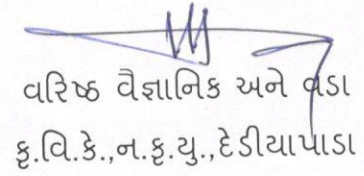 વરિષ્ઠ વૈજ્ઞાનિક અને વડા
કૃ.વિ.કે.,ન.કૃ.યુ.,દેડીયાપાડા